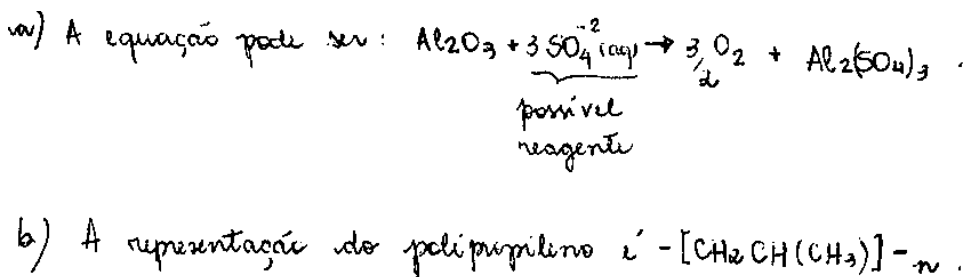 a) A equação pode ser: Al2O3 + 3 SO4^-2 (aq) → 3/2 O2 + Al2(SO4)3.
possível
reagente
b) A representação do polipropileno é -[CH2CH(CH3)]-n.